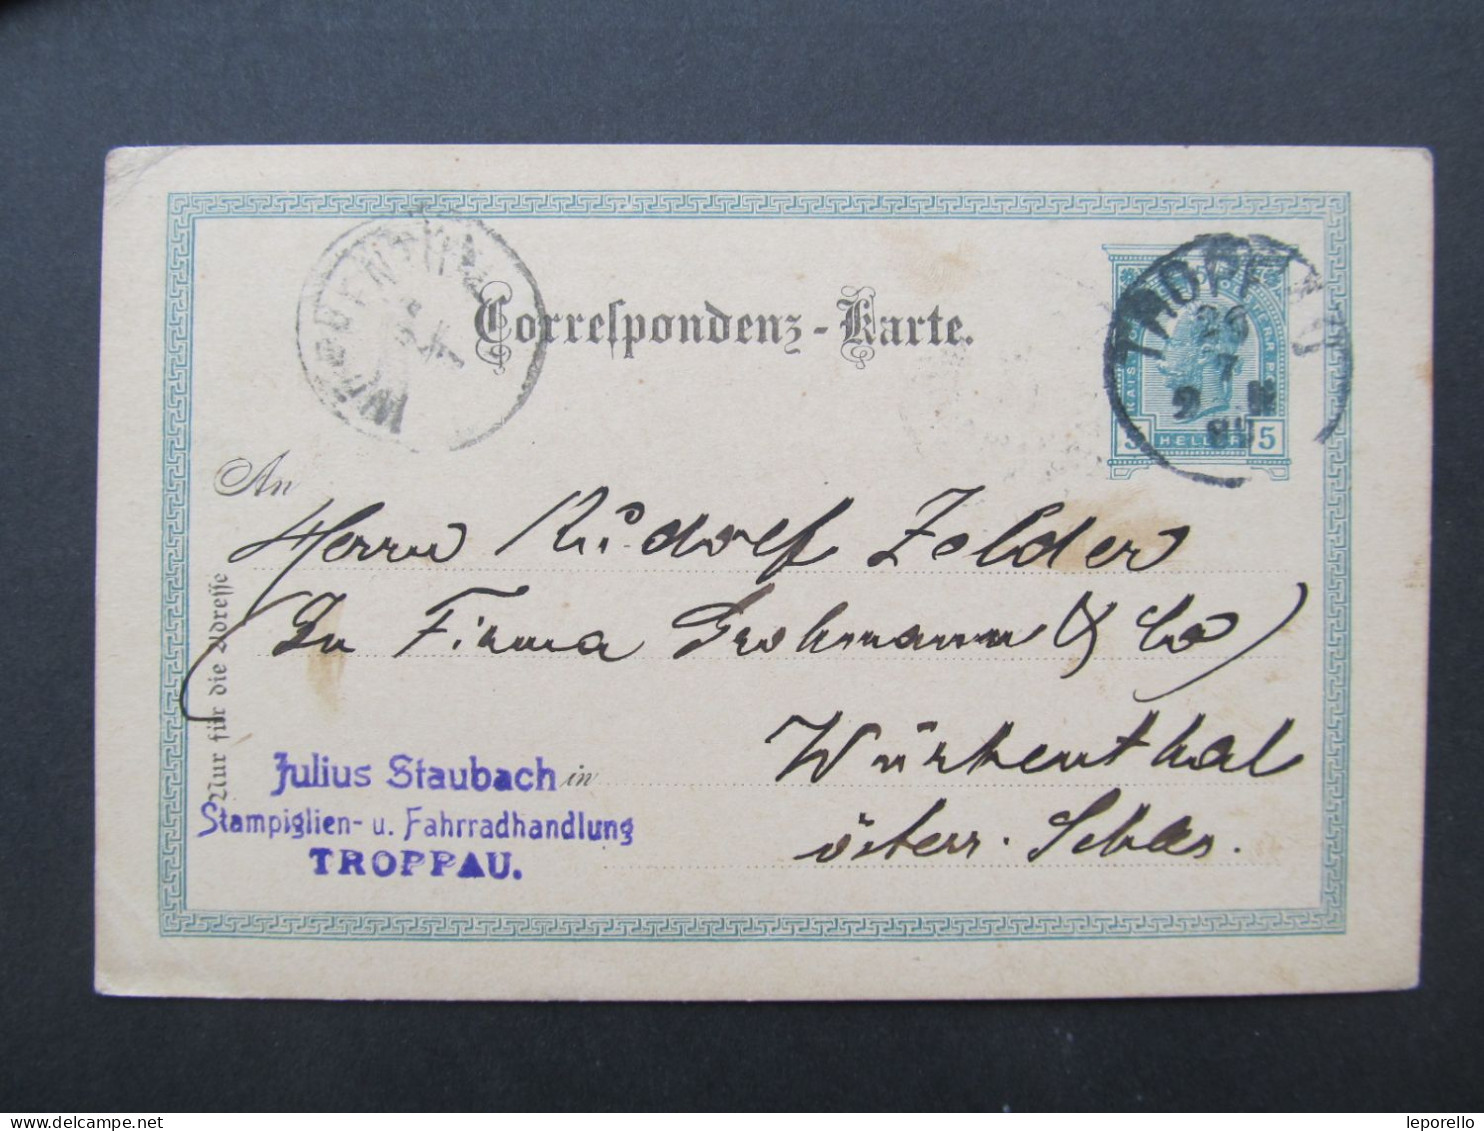 Correspondenz-Karte.
TROPPAU
26
7
9 N
5 HELLER 5
An
Herrn Rudolf Zelder
In Firma Grohmann & Co
Würbenthal
österr. Schles.
Nur für die Adresse
in
Julius Staubach
Stampiglien- u. Fahrradhandlung
TROPPAU.
www.delcampe.net
leporello